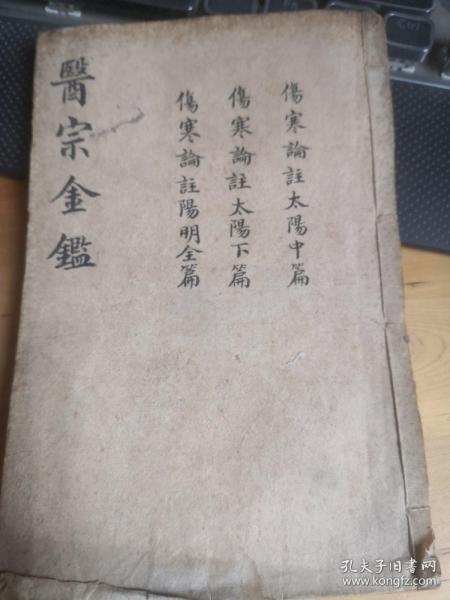 傷寒論註太陽中篇
傷寒論註太陽下篇
傷寒論註陽明全篇
醫宗金鑑
孔夫子旧书网
www.kongfz.com